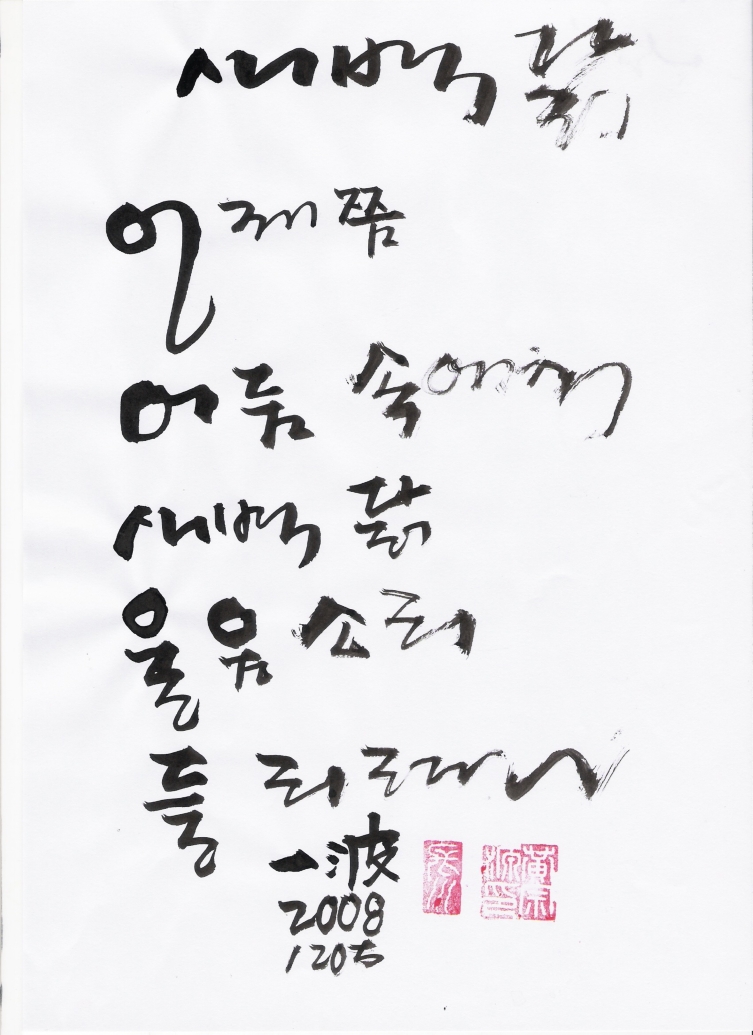 새벽 닭
언제쯤
어둠 속
새벽 닭
울음소리
들리려나
一波
2008
1205